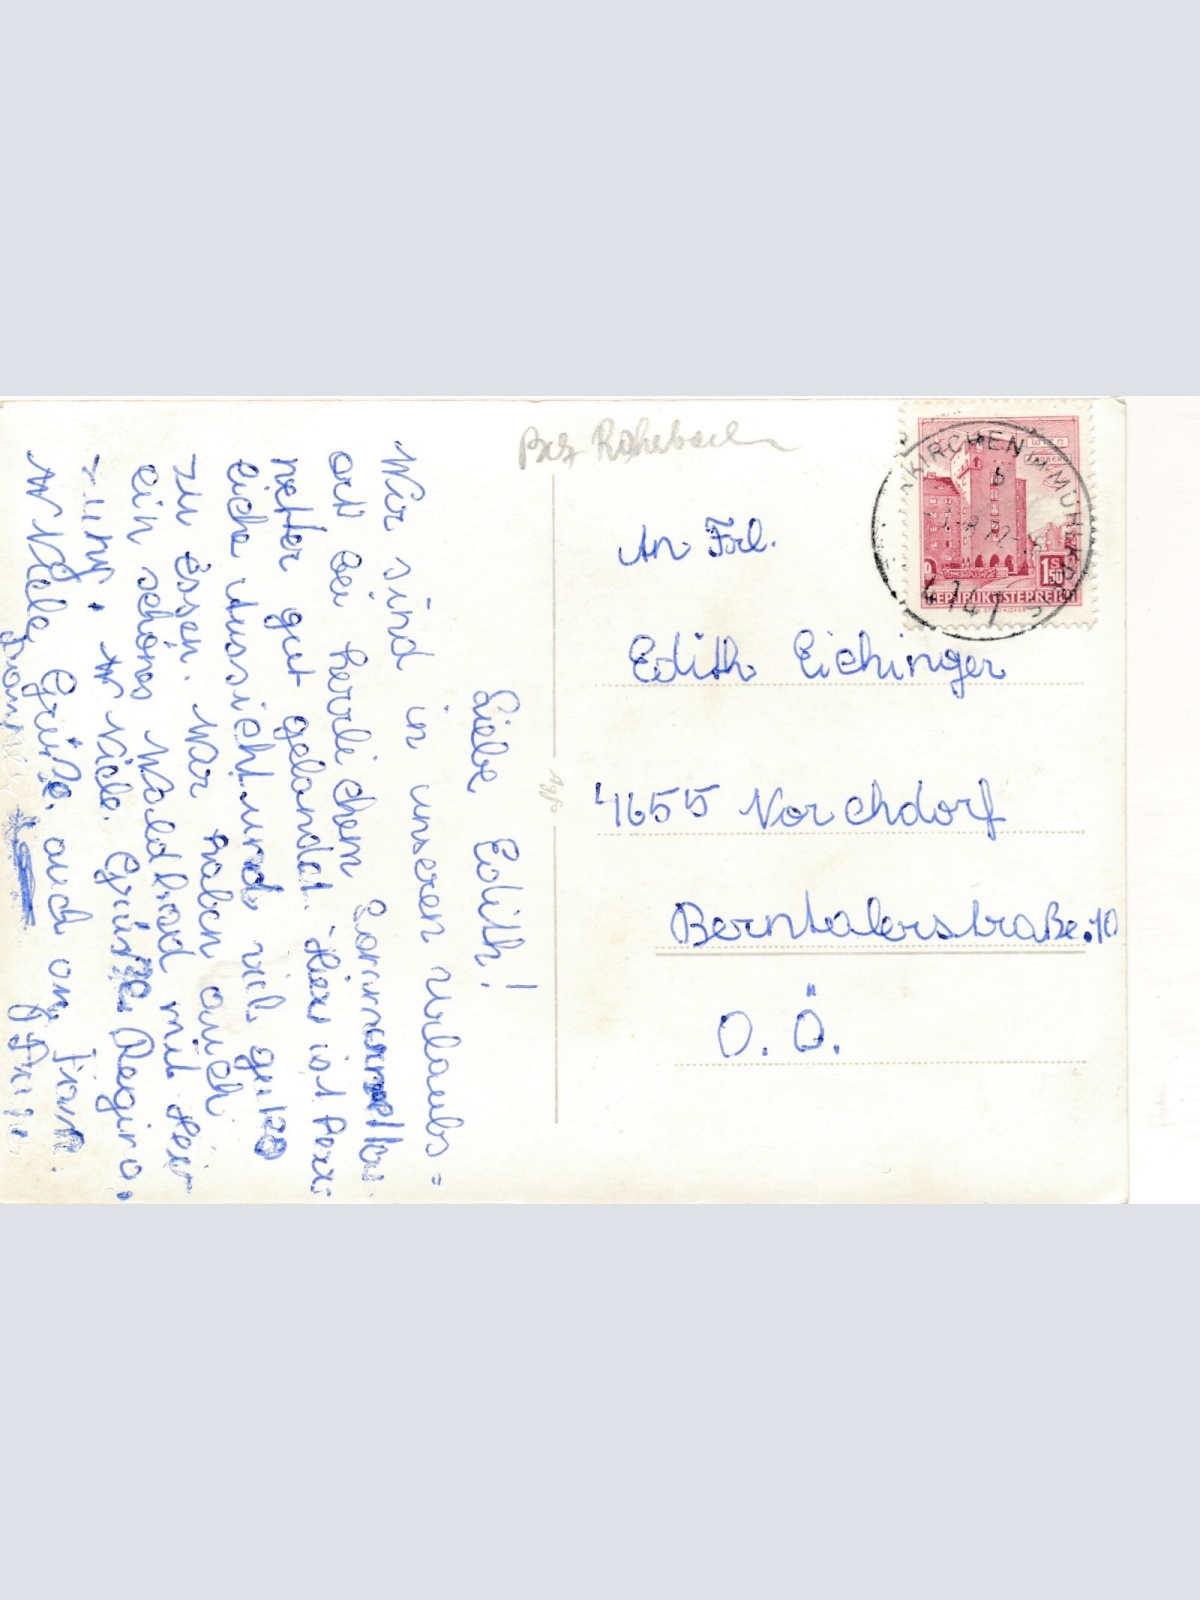 Bez Rohrbach
WIEN
1S50
REPUBLIK ÖSTERREICH
KIRCHEN IM MÜHLKREIS
b
4147
An Frl.
Edith Eichinger
4655 Vorchdorf
Berntalerstraße.10
O. Ö.
Liebe Edith!
Wir sind in unseren urlaubs=
ort bei herrlichem Sommerwetter
gut gelandet. Hier ist herr:
liche Aussicht und viel gutes
zu Essen. War haben auch
ein schönes Waldbad mit Hei
zung. Viele Grüße Regina.
Viele Grüße auch an Frau